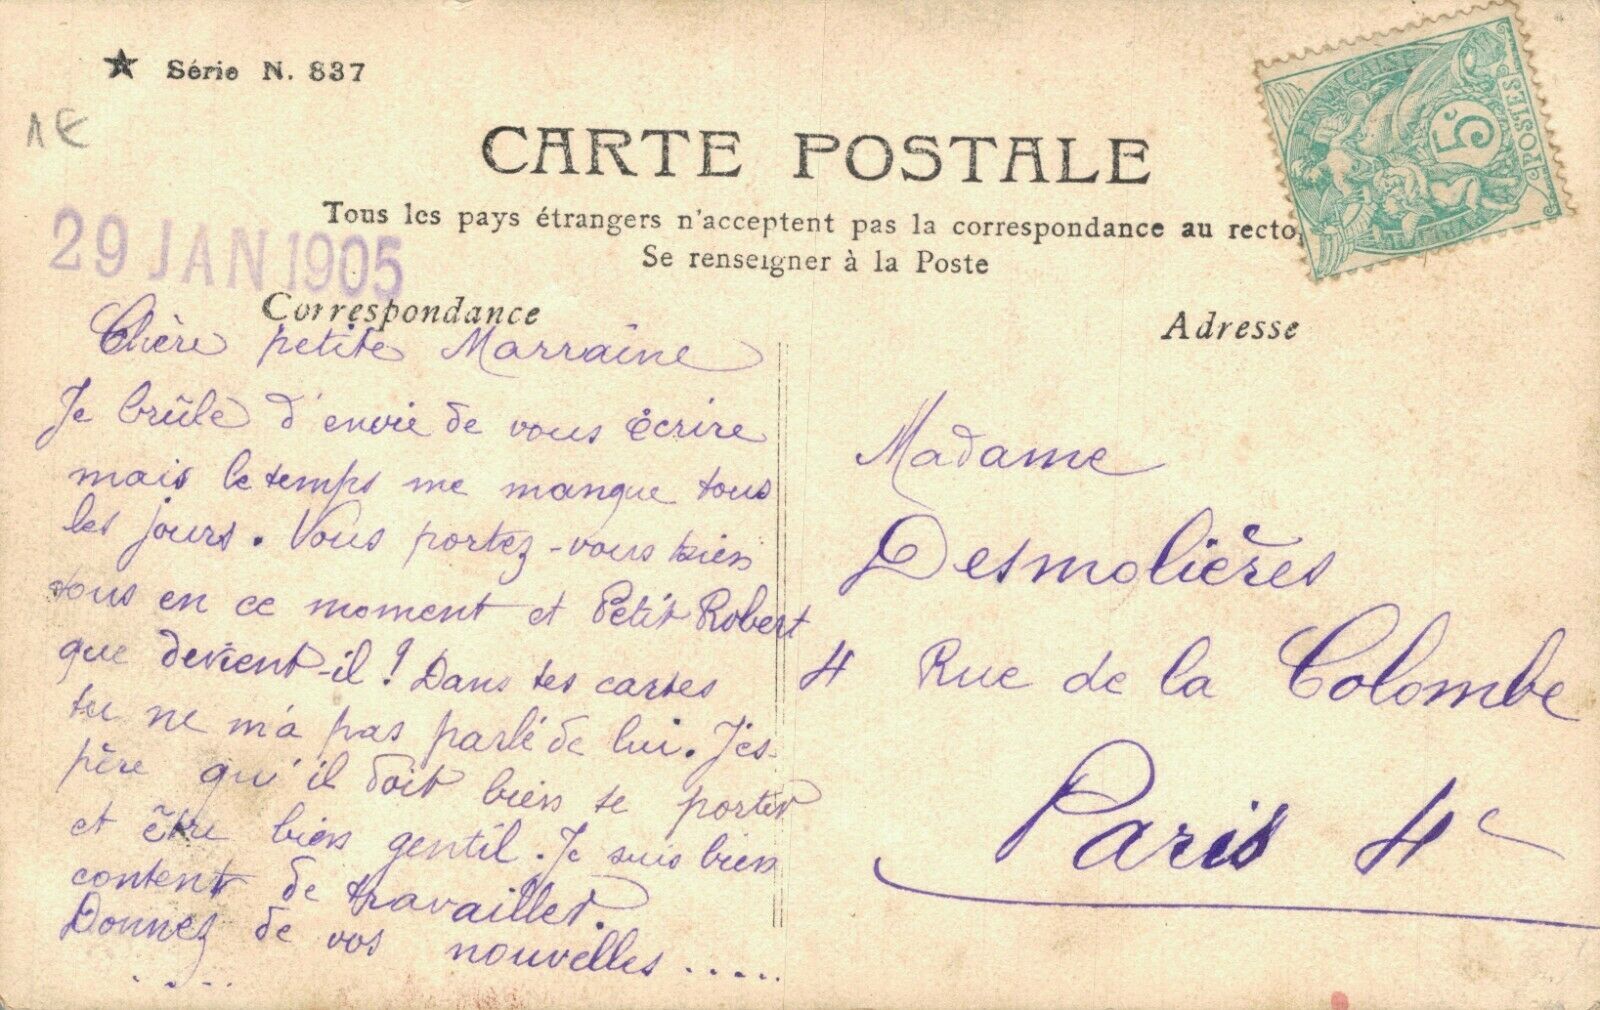 ★ Série N. 837
1€
CARTE POSTALE
Tous les pays étrangers n'acceptent pas la correspondance au recto
Se renseigner à la Poste
29 JAN 1905
Correspondance
Chère petite Marraine
Je brûle d'envie de vous écrire
mais le temps me manque tous
les jours. Vous portez-vous bien
tous en ce moment et Petit Robert
que devient-il! Dans tes cartes
tu ne m'a pas parlé de lui. J'es-
père qu'il doit bien se porter
et être bien gentil. Je suis bien
content de travailler.
Donnez de vos nouvelles .....
....
Adresse
Madame
Desmolières
4 Rue de la Colombe
Paris 4e
FRANÇAISE
5c
POSTES